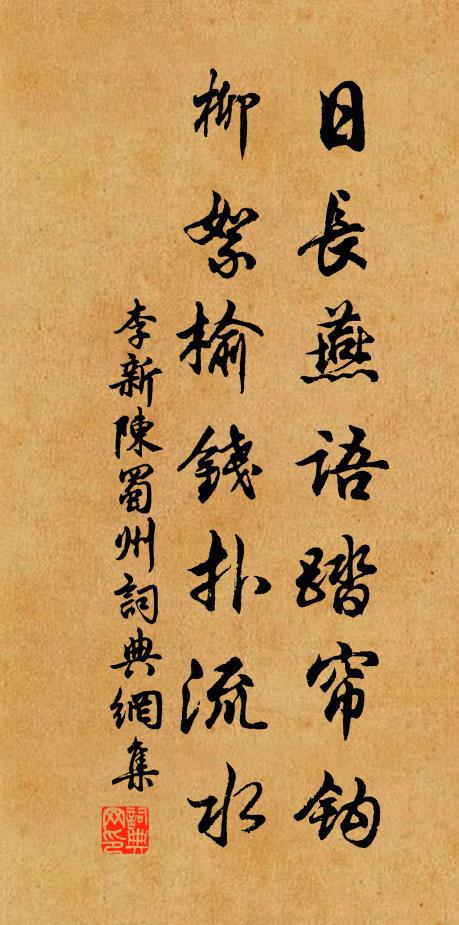 日長燕語踏帘鈎
柳絮榆錢扑流水
李新陳蜀州詞典網集
詞典网印